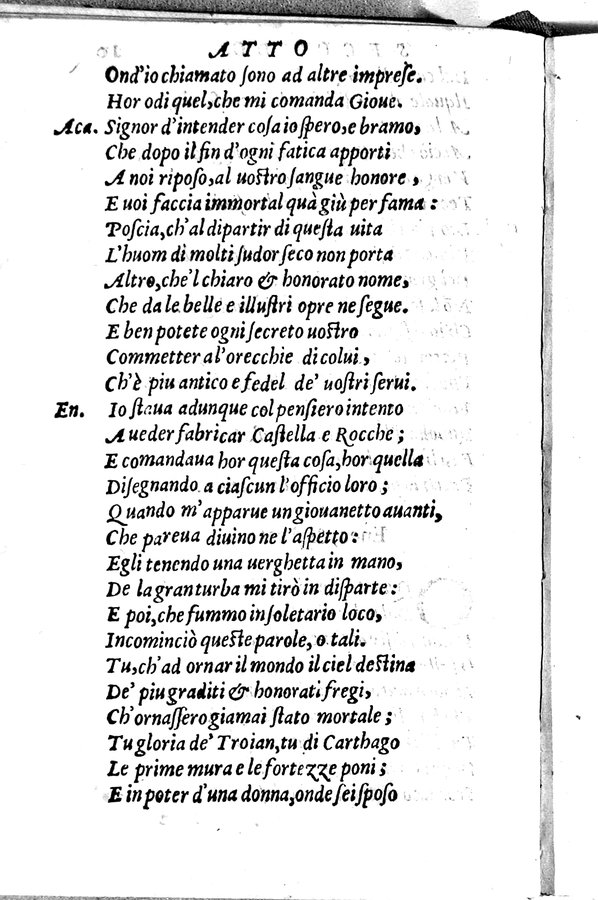 ATTO
Ond'io chiamato ſono ad altre impreſe.
Hor odi quel, che mi comanda Gioue.
Aca. Signor d'intender coſa io ſpero, e bramo,
Che dopo il fin d'ogni fatica apporti
A noi ripoſo, al uoſtro ſangue honore,
E uoi faccia immortal quà giù per fama:
Poſcia, ch'al dipartir di queſta uita
L'huom di molti ſudor ſeco non porta
Altro, che'l chiaro & honorato nome,
Che da le belle e illuſtri opre ne ſegue.
E ben potete ogni ſecreto uoſtro
Commetter a l'orecchie di colui,
Ch'è piu antico e fedel de' uoſtri ſerui.
En. Io ſtaua adunque col penſiero intento
A ueder fabricar Caſtella e Rocche;
E comandaua hor queſta coſa, hor quella
Diſegnando a ciaſcun l'officio loro;
Quando m'apparue un giouanetto auanti,
Che pareua diuino ne l'aſpetto:
Egli tenendo una uerghetta in mano,
De la gran turba mi tirò in diſparte:
E poi, che fummo in ſoletario loco,
Incominciò queſte parole, o tali.
Tu, ch'ad ornar il mondo il ciel deſtina
De' piu graditi & honorati fregi,
Ch'ornaſſero giamai ſtato mortale;
Tu gloria de' Troian, tu di Carthago
Le prime mura e le fortezze poni;
E in poter d'una donna, onde ſei ſpoſo